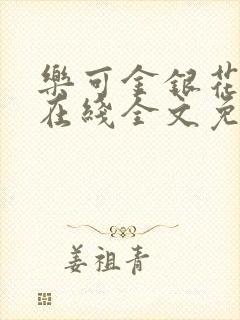 樂可金銀花
在綫全文免
姜祖青